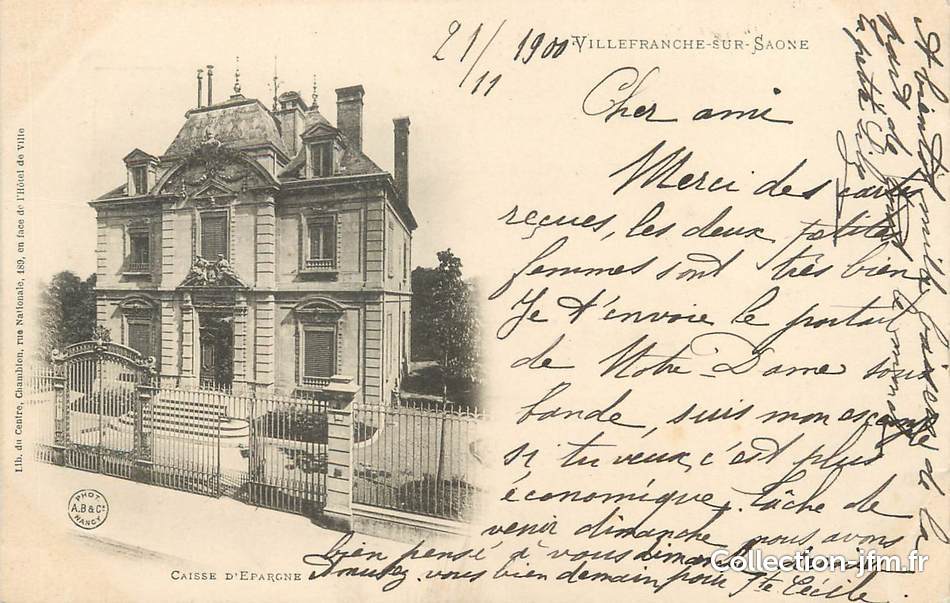 21/11 1900
VILLEFRANCHE-SUR-SAONE
Cher ami
Merci des cartes
reçues, les deux petites
femmes sont très bien
Je t'envoie le portail
de Notre-Dame sous
bande, suis mon exemple
si tu veux, c'est plus
économique. tâche de
venir dimanche nous avons
bien pensé à vous dimanche
Amusez-vous bien demain pour Ste Cécile.
A bientôt mille baisers de la
part de
la petite
Lib. du Centre, Chamblon, rue Nationale, 189, en face de l'Hôtel de Ville
PHOT.
A.B & Cie
NANCY
CAISSE D'EPARGNE
Collection-jfm.fr